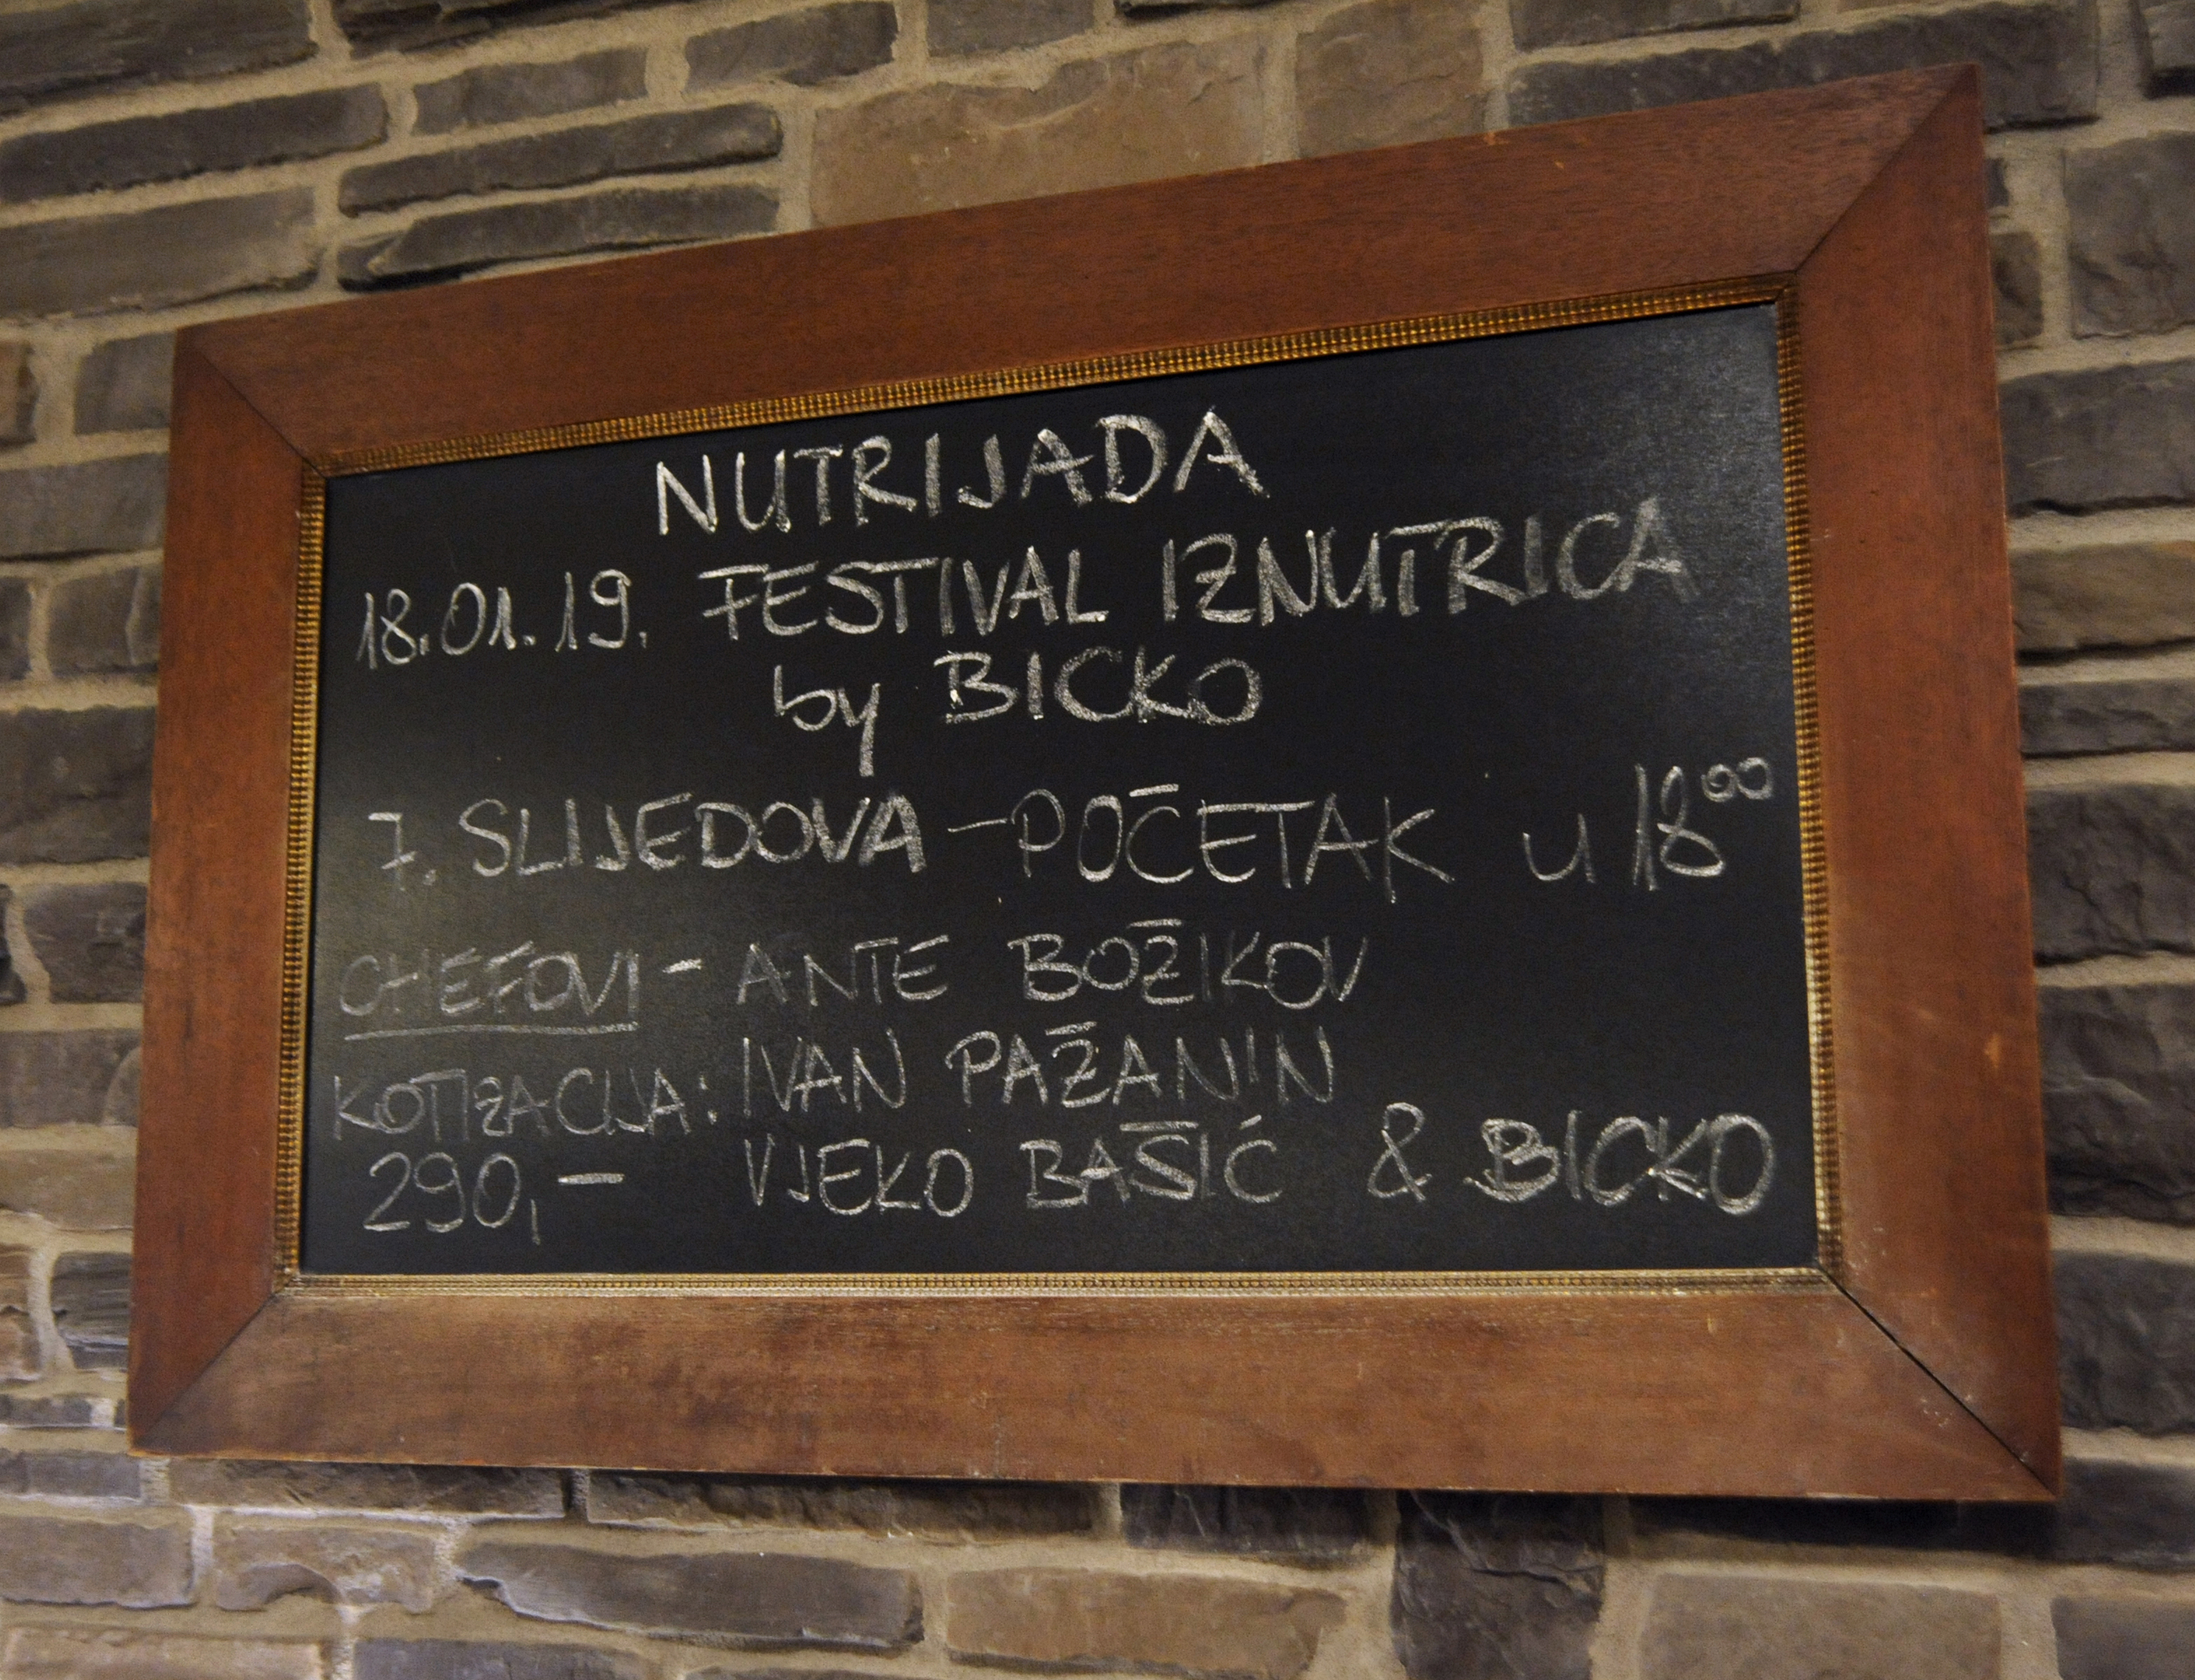 NUTRIJADA
18.01.19. FESTIVAL IZNUTRICA
by BICKO
7. SLIJEDOVA - POČETAK u 18⁰⁰
CHEFOVI - ANTE BOŽIKOV
KOTIZACIJA: IVAN PAŽANIN
290,- VJEKO BAŠIĆ & BICKO